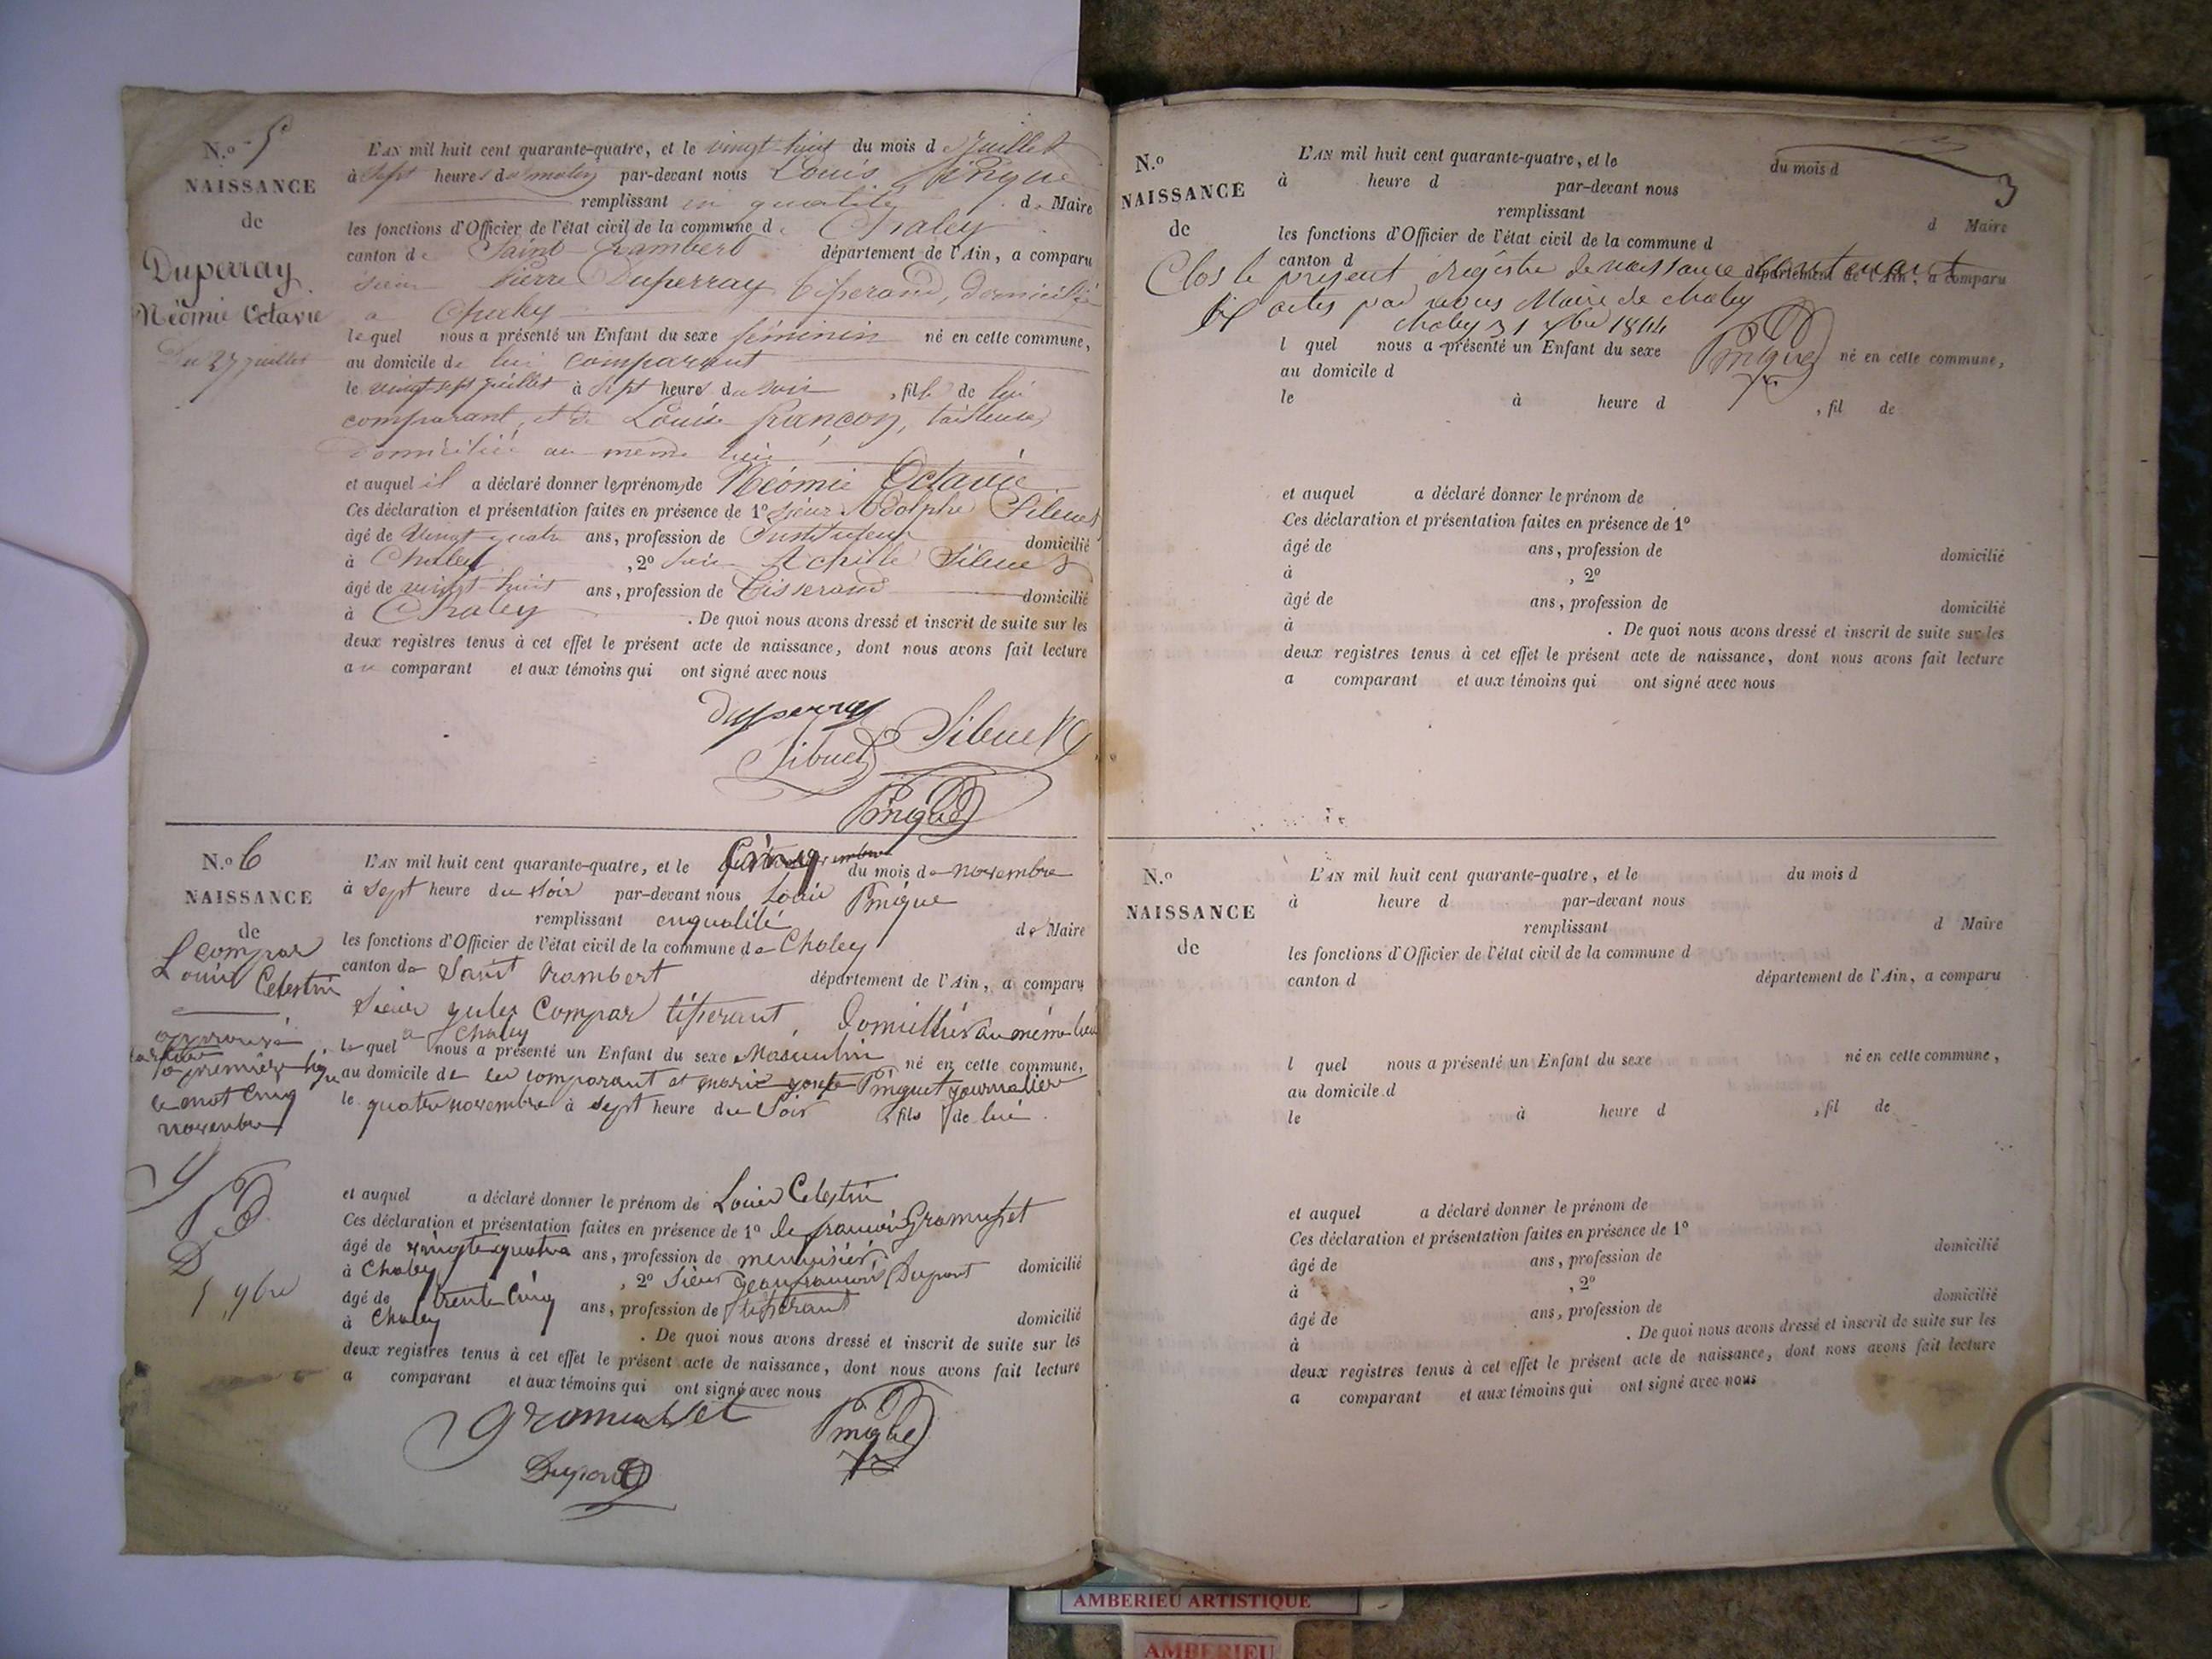 N.º 5
NAISSANCE
de
Duperray
Néomie Octavie
Du 27 juillet
L'AN mil huit cent quarante-quatre, et le vingt-huit du mois de Juillet
à Sept heures du matin par-devant nous Louis Pingue
remplissant en qualité de Maire
les fonctions d'Officier de l'état civil de la commune de Chaley
canton de Saint Rambert département de l'Ain, a comparu
sieur Pierre Duperray tisserand, domicilié
a Chaley
lequel nous a présenté un Enfant du sexe féminin né en cette commune,
au domicile de lui comparant
le vingt sept juillet à sept heures du soir, fille de lui
comparant, et de Louise francon, tailleuse
Domiciliée au même lieu
et auquel il a déclaré donner les prénoms de Néomie Octavie
Ces déclaration et présentation faites en présence de 1º sieur Adolphe Sibuet
âgé de vingt quatre ans, profession de Instituteur domicilié
à Chaley, 2º sieur Achille Sibuet
âgé de vingt-huit ans, profession de Tisserand domicilié
à Chaley. De quoi nous avons dressé et inscrit de suite sur les
deux registres tenus à cet effet le présent acte de naissance, dont nous avons fait lecture
au comparant et aux témoins qui ont signé avec nous
Duperray
Sibuet Sibuet
Pingue
N.º 6
NAISSANCE
de
Compar
Louis Celestin
approuvé
la première
le mot Cinq
novembre
5 9bre
L'AN mil huit cent quarante-quatre, et le Cinq du mois de novembre
à Sept heure du soir par-devant nous Louis Pingue
remplissant enqualité de Maire
les fonctions d'Officier de l'état civil de la commune de Chaley
canton de Saint Rambert département de l'Ain, a comparu
Sieur jules Compar tisserant, Domicilliés au même lieu
a Chaley
le quel nous a présenté un Enfant du sexe Masculin né en cette commune,
au domicile de lui comparant et marie josepte Pinguet journalier
le quatre novembre à sept heure du Soir, fils de lui
et auquel a déclaré donner le prénom de Louis Celestin
Ces déclaration et présentation faites en présence de 1º le francois Gramusset
âgé de vingte quatre ans, profession de menuisier domicilié
à Chaley, 2º Sieur jean francois Dupont
âgé de trente Cinq ans, profession de tisserant domicilié
à Chaley. De quoi nous avons dressé et inscrit de suite sur les
deux registres tenus à cet effet le présent acte de naissance, dont nous avons fait lecture
a comparant et aux témoins qui ont signé avec nous
gramusset Pingue
Dupont
N.º
NAISSANCE
de
L'AN mil huit cent quarante-quatre, et le du mois d
à heure d par-devant nous
remplissant d Maire
les fonctions d'Officier de l'état civil de la commune d
canton d département de l'Ain, a comparu
Clos le présent Registre de naissance contenant
six actes par nous Maire de chaley
chaley 31 xbre 1844
Pingue
l quel nous a présenté un Enfant du sexe né en cette commune,
au domicile d
le à heure d , fil de
et auquel a déclaré donner le prénom de
Ces déclaration et présentation faites en présence de 1º
âgé de ans, profession de domicilié
à , 2º
âgé de ans, profession de domicilié
à . De quoi nous avons dressé et inscrit de suite sur les
deux registres tenus à cet effet le présent acte de naissance, dont nous avons fait lecture
a comparant et aux témoins qui ont signé avec nous
N.º
NAISSANCE
de
L'AN mil huit cent quarante-quatre, et le du mois d
à heure d par-devant nous
remplissant d Maire
les fonctions d'Officier de l'état civil de la commune d
canton d département de l'Ain, a comparu
l quel nous a présenté un Enfant du sexe né en cette commune,
au domicile d
le à heure d , fil de
et auquel a déclaré donner le prénom de
Ces déclaration et présentation faites en présence de 1º
âgé de ans, profession de domicilié
à , 2º
âgé de ans, profession de domicilié
à . De quoi nous avons dressé et inscrit de suite sur les
deux registres tenus à cet effet le présent acte de naissance, dont nous avons fait lecture
a comparant et aux témoins qui ont signé avec nous
AMBERIEU ARTISTIQUE
AMBERIEU